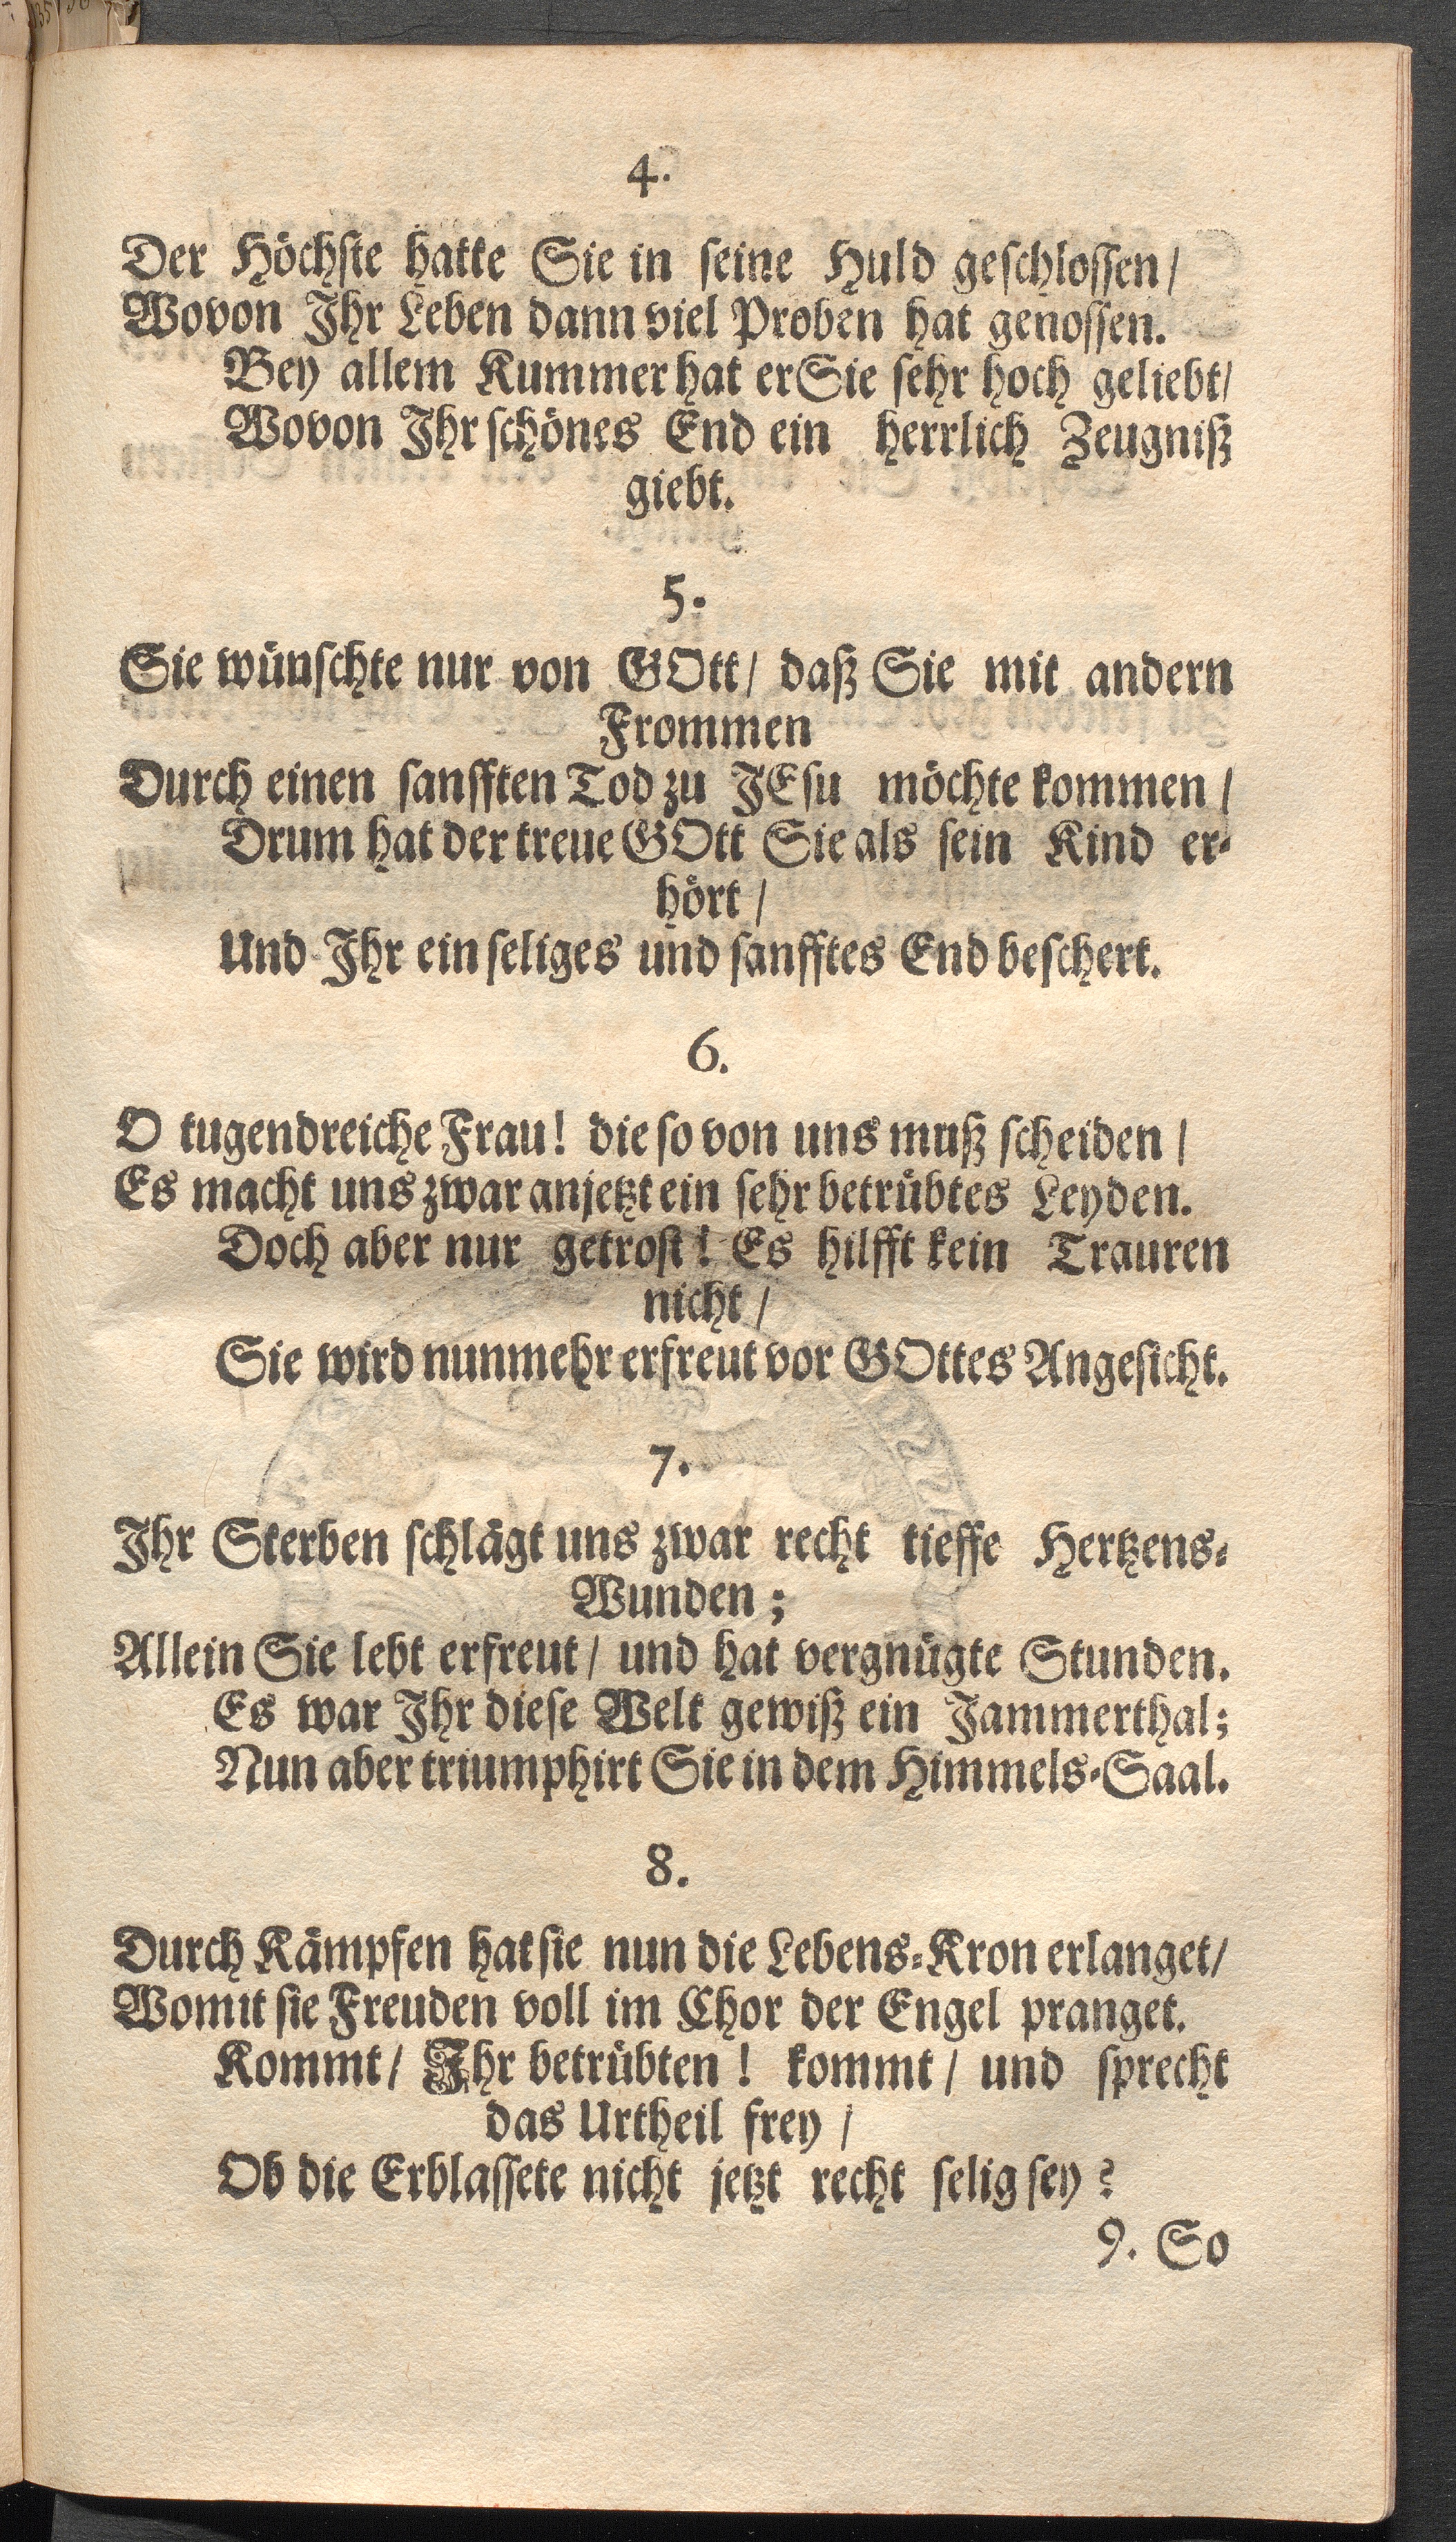 4.
Der Höchste hatte Sie in seine Huld geschlossen/
Wovon Ihr Leben dann viel Proben hat genossen.
Bey allem Kummer hat er Sie sehr hoch geliebt/
Wovon Ihr schönes End ein herrlich Zeugniß
giebt.
5.
Sie wünschte nur von GOtt/ daß Sie mit andern
Frommen
Durch einen sanfften Tod zu JEsu möchte kommen/
Drum hat der treue GOtt Sie als sein Kind er-
hört/
Und Ihr ein seliges und sanfftes End beschert.
6.
O tugendreiche Frau! die so von uns muß scheiden/
Es macht uns zwar anjetzt ein sehr betrübtes Leyden.
Doch aber nur getrost! Es hilfft kein Trauren
nicht/
Sie wird nunmehr erfreut vor GOttes Angesicht.
7.
Ihr Sterben schlägt uns zwar recht tieffe Hertzens-
Wunden;
Allein Sie lebt erfreut/ und hat vergnügte Stunden.
Es war Ihr diese Welt gewiß ein Jammerthal;
Nun aber triumphirt Sie in dem Himmels-Saal.
8.
Durch Kämpfen hat sie nun die Lebens-Kron erlanget/
Womit sie Freuden voll im Chor der Engel pranget.
Kommt/ Ihr betrübten! kommt/ und sprecht
das Urtheil frey/
Ob die Erblassete nicht jetzt recht selig sey?
9. So